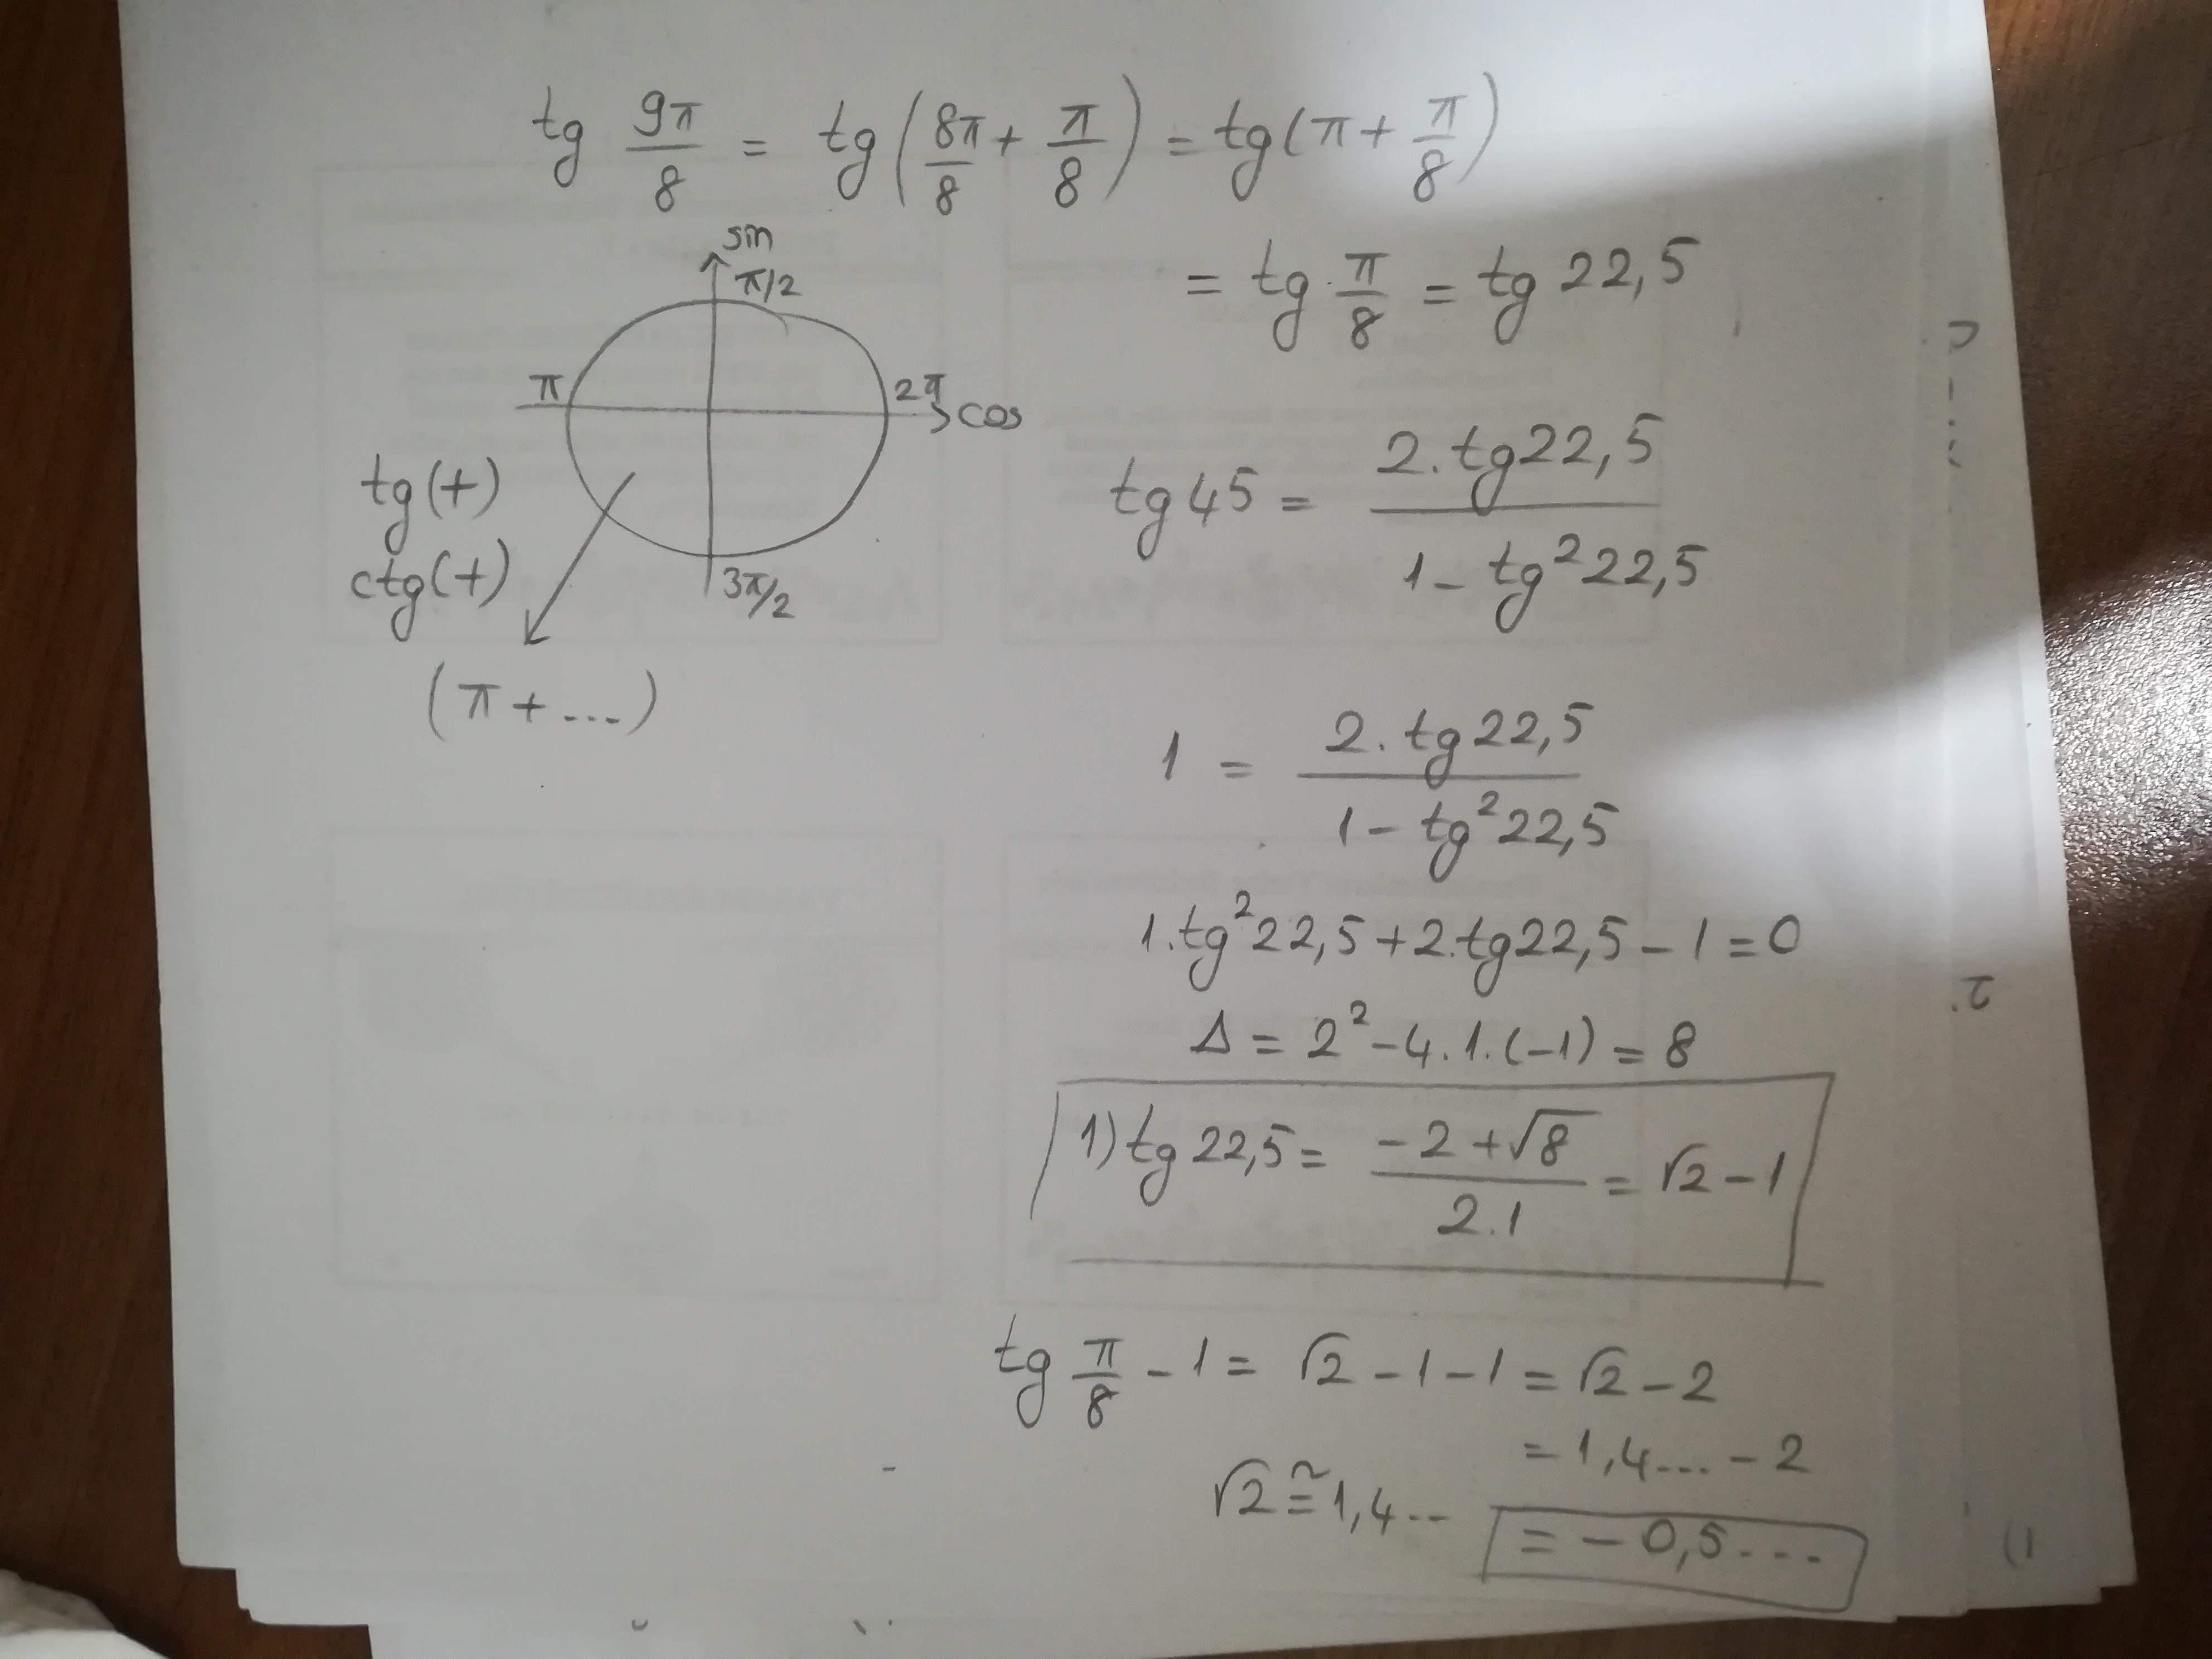 tg 9π/8 = tg(8π/8 + π/8) = tg(π + π/8)
= tg π/8 = tg 22,5
sin
π/2
π
2π
cos
3π/2
tg(+)
ctg(+)
(π + ...)
tg 45 = 2.tg22,5 / 1 - tg²22,5
1 = 2.tg22,5 / 1 - tg²22,5
1.tg²22,5 + 2.tg22,5 - 1 = 0
Δ = 2² - 4.1.(-1) = 8
1) tg 22,5 = -2 + √8 / 2.1 = √2 - 1
tg π/8 - 1 = √2 - 1 - 1 = √2 - 2
= 1,4... - 2
√2 ≅ 1,4..
= - 0,5...